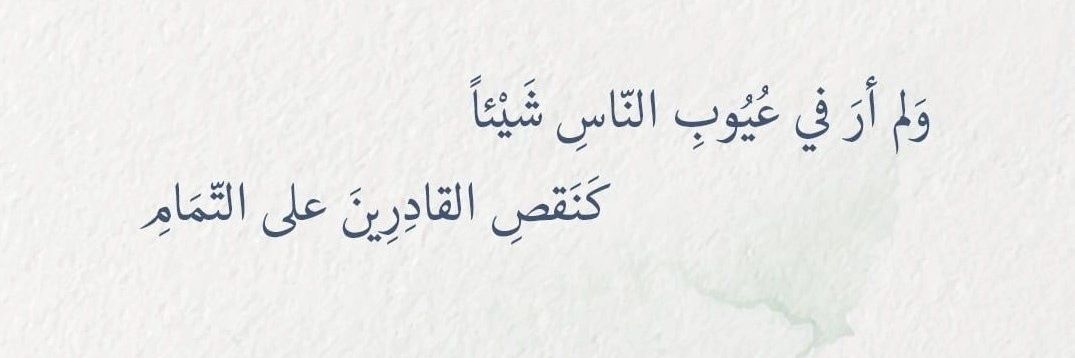 وَلم أرَ في عُيُوبِ النّاسِ شَيْئاً
كَنَقصِ القادِرِينَ على التّمَامِ